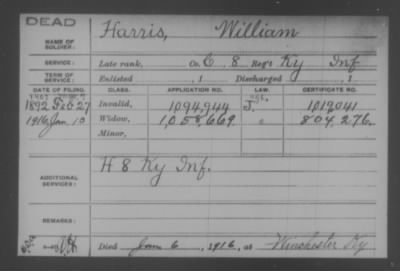 DEAD
Harris, William
NAME OF SOLDIER:
SERVICE: Late rank, Co. C, 8 Reg't Ky Inf
TERM OF SERVICE: Enlisted , 1 Discharged , 1
DATE OF FILING. CLASS. APPLICATION NO. LAW. CERTIFICATE NO.
1892 Feb 27 Invalid, 1094,944 J. 1,019,041
1916 Jan. 10 Widow, 1,058,669 804,276
Minor,
ADDITIONAL SERVICES: H 8 Ky Inf.
REMARKS:
Died Jan 6, 1916, at Winchester Ky